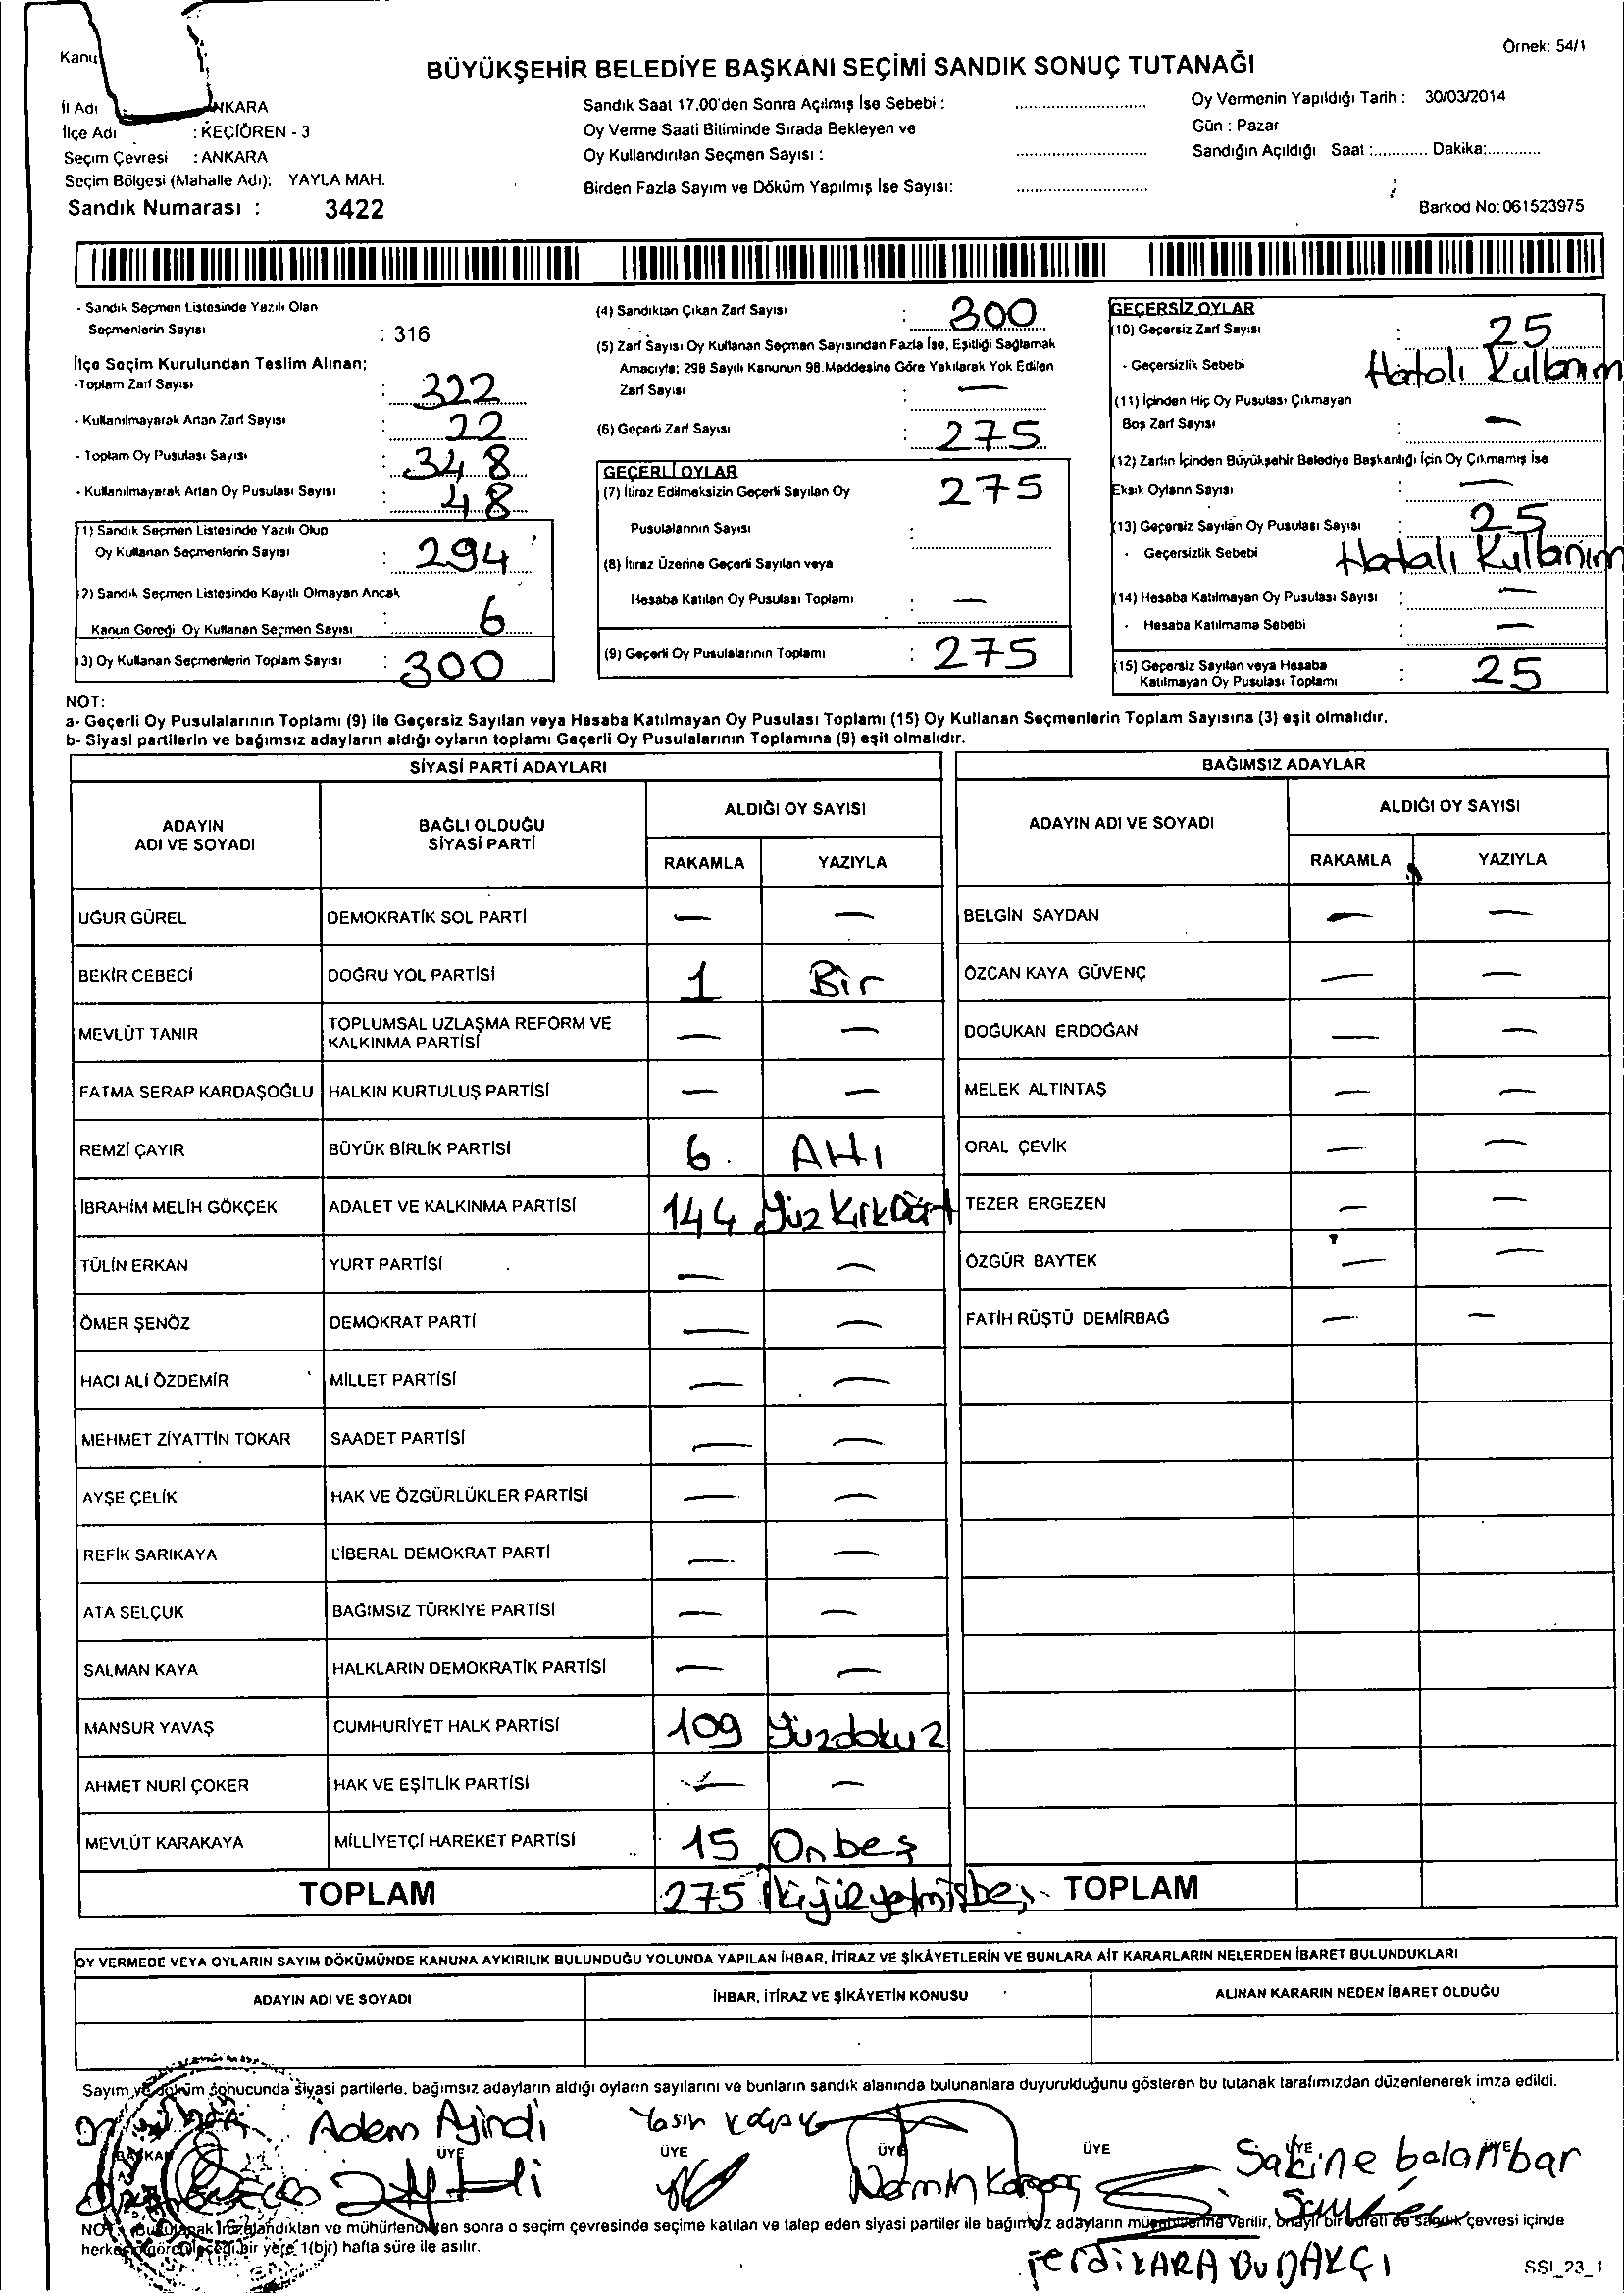 Örnek: 54/1
BÜYÜKŞEHİR BELEDİYE BAŞKANI SEÇİMİ SANDIK SONUÇ TUTANAĞI
İl Adı
İlçe Adı : KEÇİÖREN - 3
Seçim Çevresi : ANKARA
Seçim Bölgesi (Mahalle Adı): YAYLA MAH.
Sandık Numarası : 3422
Sandık Saat 17.00'den Sonra Açılmış İse Sebebi :
Oy Verme Saati Bitiminde Sırada Bekleyen ve
Oy Kullandırılan Seçmen Sayısı :
Birden Fazla Sayım ve Döküm Yapılmış İse Sayısı:
Oy Vermenin Yapıldığı Tarih : 30/03/2014
Gün : Pazar
Sandığın Açıldığı Saat :............ Dakika:............
Barkod No: 061523975
- Sandık Seçmen Listesinde Yazılı Olan
Seçmenlerin Sayısı : 316
İlçe Seçim Kurulundan Teslim Alınan;
-Toplam Zarf Sayısı : 322
- Kullanılmayarak Artan Zarf Sayısı : 22
- Toplam Oy Pusulası Sayısı : 348
- Kullanılmayarak Artan Oy Pusulası Sayısı : 48
(1) Sandık Seçmen Listesinde Yazılı Olup
Oy Kullanan Seçmenlerin Sayısı : 294
(2) Sandık Seçmen Listesinde Kayıtlı Olmayan Ancak
Kanun Gereği Oy Kullanan Seçmen Sayısı : 6
(3) Oy Kullanan Seçmenlerin Toplam Sayısı : 300
(4) Sandıktan Çıkan Zarf Sayısı : 300
(5) Zarf Sayısı Oy Kullanan Seçmen Sayısından Fazla İse, Eşitliği Sağlamak
Amacıyla; 298 Sayılı Kanunun 98.Maddesine Göre Yakılarak Yok Edilen
Zarf Sayısı : —
(6) Geçerli Zarf Sayısı : 275
GEÇERLİ OYLAR
(7) İtiraz Edilmeksizin Geçerli Sayılan Oy 275
Pusulalarının Sayısı :
(8) İtiraz Üzerine Geçerli Sayılan veya
Hesaba Katılan Oy Pusulası Toplamı : —
(9) Geçerli Oy Pusulalarının Toplamı : 275
GEÇERSİZ OYLAR
(10) Geçersiz Zarf Sayısı : 25
- Geçersizlik Sebebi Hatalı Kullanım
(11) İçinden Hiç Oy Pusulası Çıkmayan
Boş Zarf Sayısı : —
(12) Zarfın İçinden Büyükşehir Belediye Başkanlığı İçin Oy Çıkmamış İse
Eksik Oyların Sayısı : —
(13) Geçersiz Sayılan Oy Pusulası Sayısı : 25
- Geçersizlik Sebebi Hatalı Kullanım
(14) Hesaba Katılmayan Oy Pusulası Sayısı : —
- Hesaba Katılmama Sebebi : —
(15) Geçersiz Sayılan veya Hesaba
Katılmayan Oy Pusulası Toplamı : 25
NOT:
a- Geçerli Oy Pusulalarının Toplamı (9) ile Geçersiz Sayılan veya Hesaba Katılmayan Oy Pusulası Toplamı (15) Oy Kullanan Seçmenlerin Toplam Sayısına (3) eşit olmalıdır.
b- Siyasi partilerin ve bağımsız adayların aldığı oyların toplamı Geçerli Oy Pusulalarının Toplamına (9) eşit olmalıdır.
SİYASİ PARTİ ADAYLARI
ADAYIN ADI VE SOYADI BAĞLI OLDUĞU SİYASİ PARTİ ALDIĞI OY SAYISI
RAKAMLA YAZIYLA
UĞUR GÜREL DEMOKRATİK SOL PARTİ — —
BEKİR CEBECİ DOĞRU YOL PARTİSİ 1 Bir
MEVLÜT TANIR TOPLUMSAL UZLAŞMA REFORM VE KALKINMA PARTİSİ — —
FATMA SERAP KARDAŞOĞLU HALKIN KURTULUŞ PARTİSİ — —
REMZİ ÇAYIR BÜYÜK BİRLİK PARTİSİ 6 Altı
İBRAHİM MELİH GÖKÇEK ADALET VE KALKINMA PARTİSİ 144 YüzKırkDört
TÜLİN ERKAN YURT PARTİSİ — —
ÖMER ŞENÖZ DEMOKRAT PARTİ — —
HACI ALİ ÖZDEMİR MİLLET PARTİSİ — —
MEHMET ZİYATTİN TOKAR SAADET PARTİSİ — —
AYŞE ÇELİK HAK VE ÖZGÜRLÜKLER PARTİSİ — —
REFİK SARIKAYA LİBERAL DEMOKRAT PARTİ — —
ATA SELÇUK BAĞIMSIZ TÜRKİYE PARTİSİ — —
SALMAN KAYA HALKLARIN DEMOKRATİK PARTİSİ — —
MANSUR YAVAŞ CUMHURİYET HALK PARTİSİ 109 Yüzdokuz
AHMET NURİ ÇOKER HAK VE EŞİTLİK PARTİSİ — —
MEVLÜT KARAKAYA MİLLİYETÇİ HAREKET PARTİSİ 15 Onbeş
TOPLAM 275 İkiyüzyetmişbeş
BAĞIMSIZ ADAYLAR
ADAYIN ADI VE SOYADI ALDIĞI OY SAYISI
RAKAMLA YAZIYLA
BELGİN SAYDAN — —
ÖZCAN KAYA GÜVENÇ — —
DOĞUKAN ERDOĞAN — —
MELEK ALTINTAŞ — —
ORAL ÇEVİK — —
TEZER ERGEZEN — —
ÖZGÜR BAYTEK — —
FATİH RÜŞTÜ DEMİRBAĞ — —
TOPLAM
OY VERMEDE VEYA OYLARIN SAYIM DÖKÜMÜNDE KANUNA AYKIRILIK BULUNDUĞU YOLUNDA YAPILAN İHBAR, İTİRAZ VE ŞİKÂYETLERİN VE BUNLARA AİT KARARLARIN NELERDEN İBARET BULUNDUKLARI
ADAYIN ADI VE SOYADI İHBAR, İTİRAZ VE ŞİKÂYETİN KONUSU ALINAN KARARIN NEDEN İBARET OLDUĞU
Sayım ve döküm sonucunda siyasi partilerle, bağımsız adayların aldığı oyların sayılarını ve bunların sandık alanında bulunanlara duyurulduğunu gösteren bu tutanak tarafımızdan düzenlenerek imza edildi.
Adem Ayindi Yasin
BAŞKAN ÜYE ÜYE ÜYE ÜYE ÜYE ÜYE
Sakine balambar
Nermin
NOT : Bu tutanak imzalandıktan ve mühürlendikten sonra o seçim çevresinde seçime katılan ve talep eden siyasi partiler ile bağımsız adayların müşahitlerine verilir, onaylı bir sureti de sandık çevresi içinde
herkesin görebileceği bir yere 1(bir) hafta süre ile asılır.
Ferdi KARABUDAKÇI
SSI_23_1